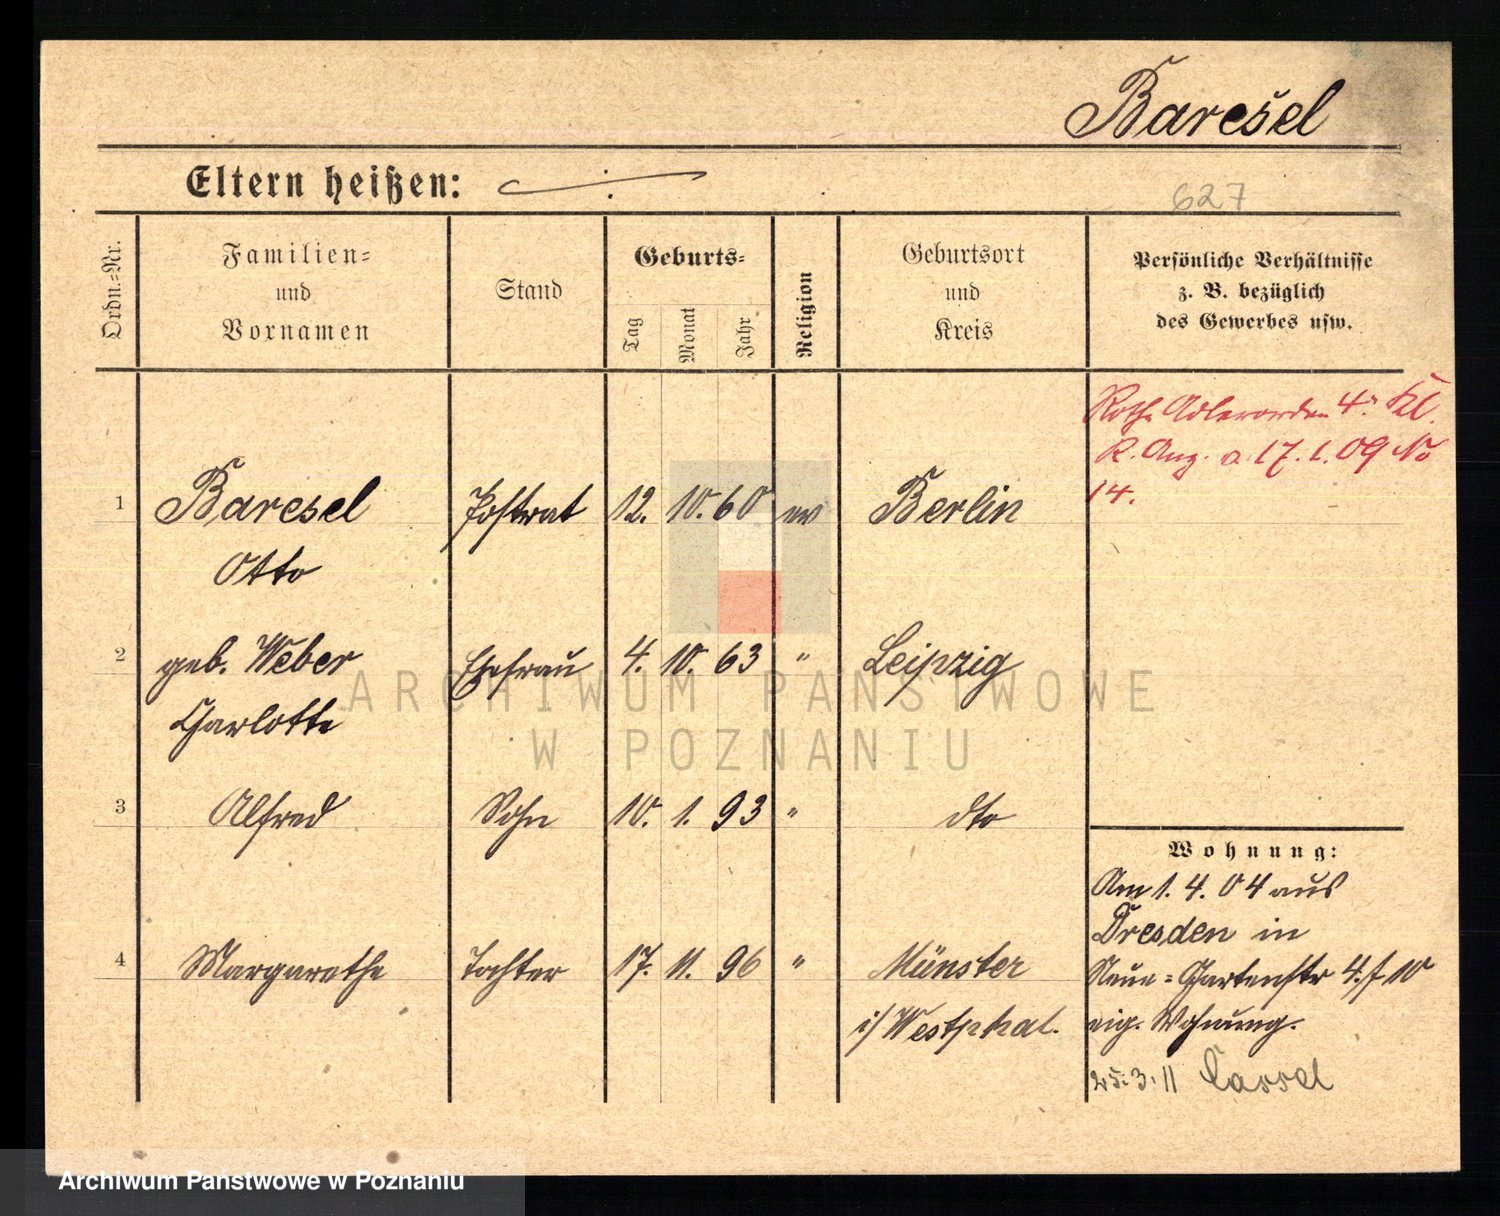 Barešel
Eltern heißen:
627
Ordn.-Nr.
Familien-
und
Vornamen
Stand
Geburts-
Tag
Monat
Jahr
Religion
Geburtsort
und
Kreis
Persönliche Verhältnisse
z. B. bezüglich
des Gewerbes usw.
Roth. Adlerorden 4. Kl.
R. Anz. a. 17. 1. 09 No
14.
1 Baresel Postrat 12. 10. 60 ev Berlin
Otto
2 geb. Weber Ehefrau 4. 10. 63 " Leipzig
Charlotte
3 Alfred Sohn 10. 1. 93 " dto
4 Margarethe Tochter 17. 11. 96 " Münster
i/ Westphal.
Wohnung:
Am 1. 4. 04 aus
Dresden in
Neue-Gartenstr 4. f 10
eig. Wohnung.
25. 3. 11 Cassel
ARCHIWUM PAŃSTWOWE
W POZNANIU
Archiwum Państwowe w Poznaniu